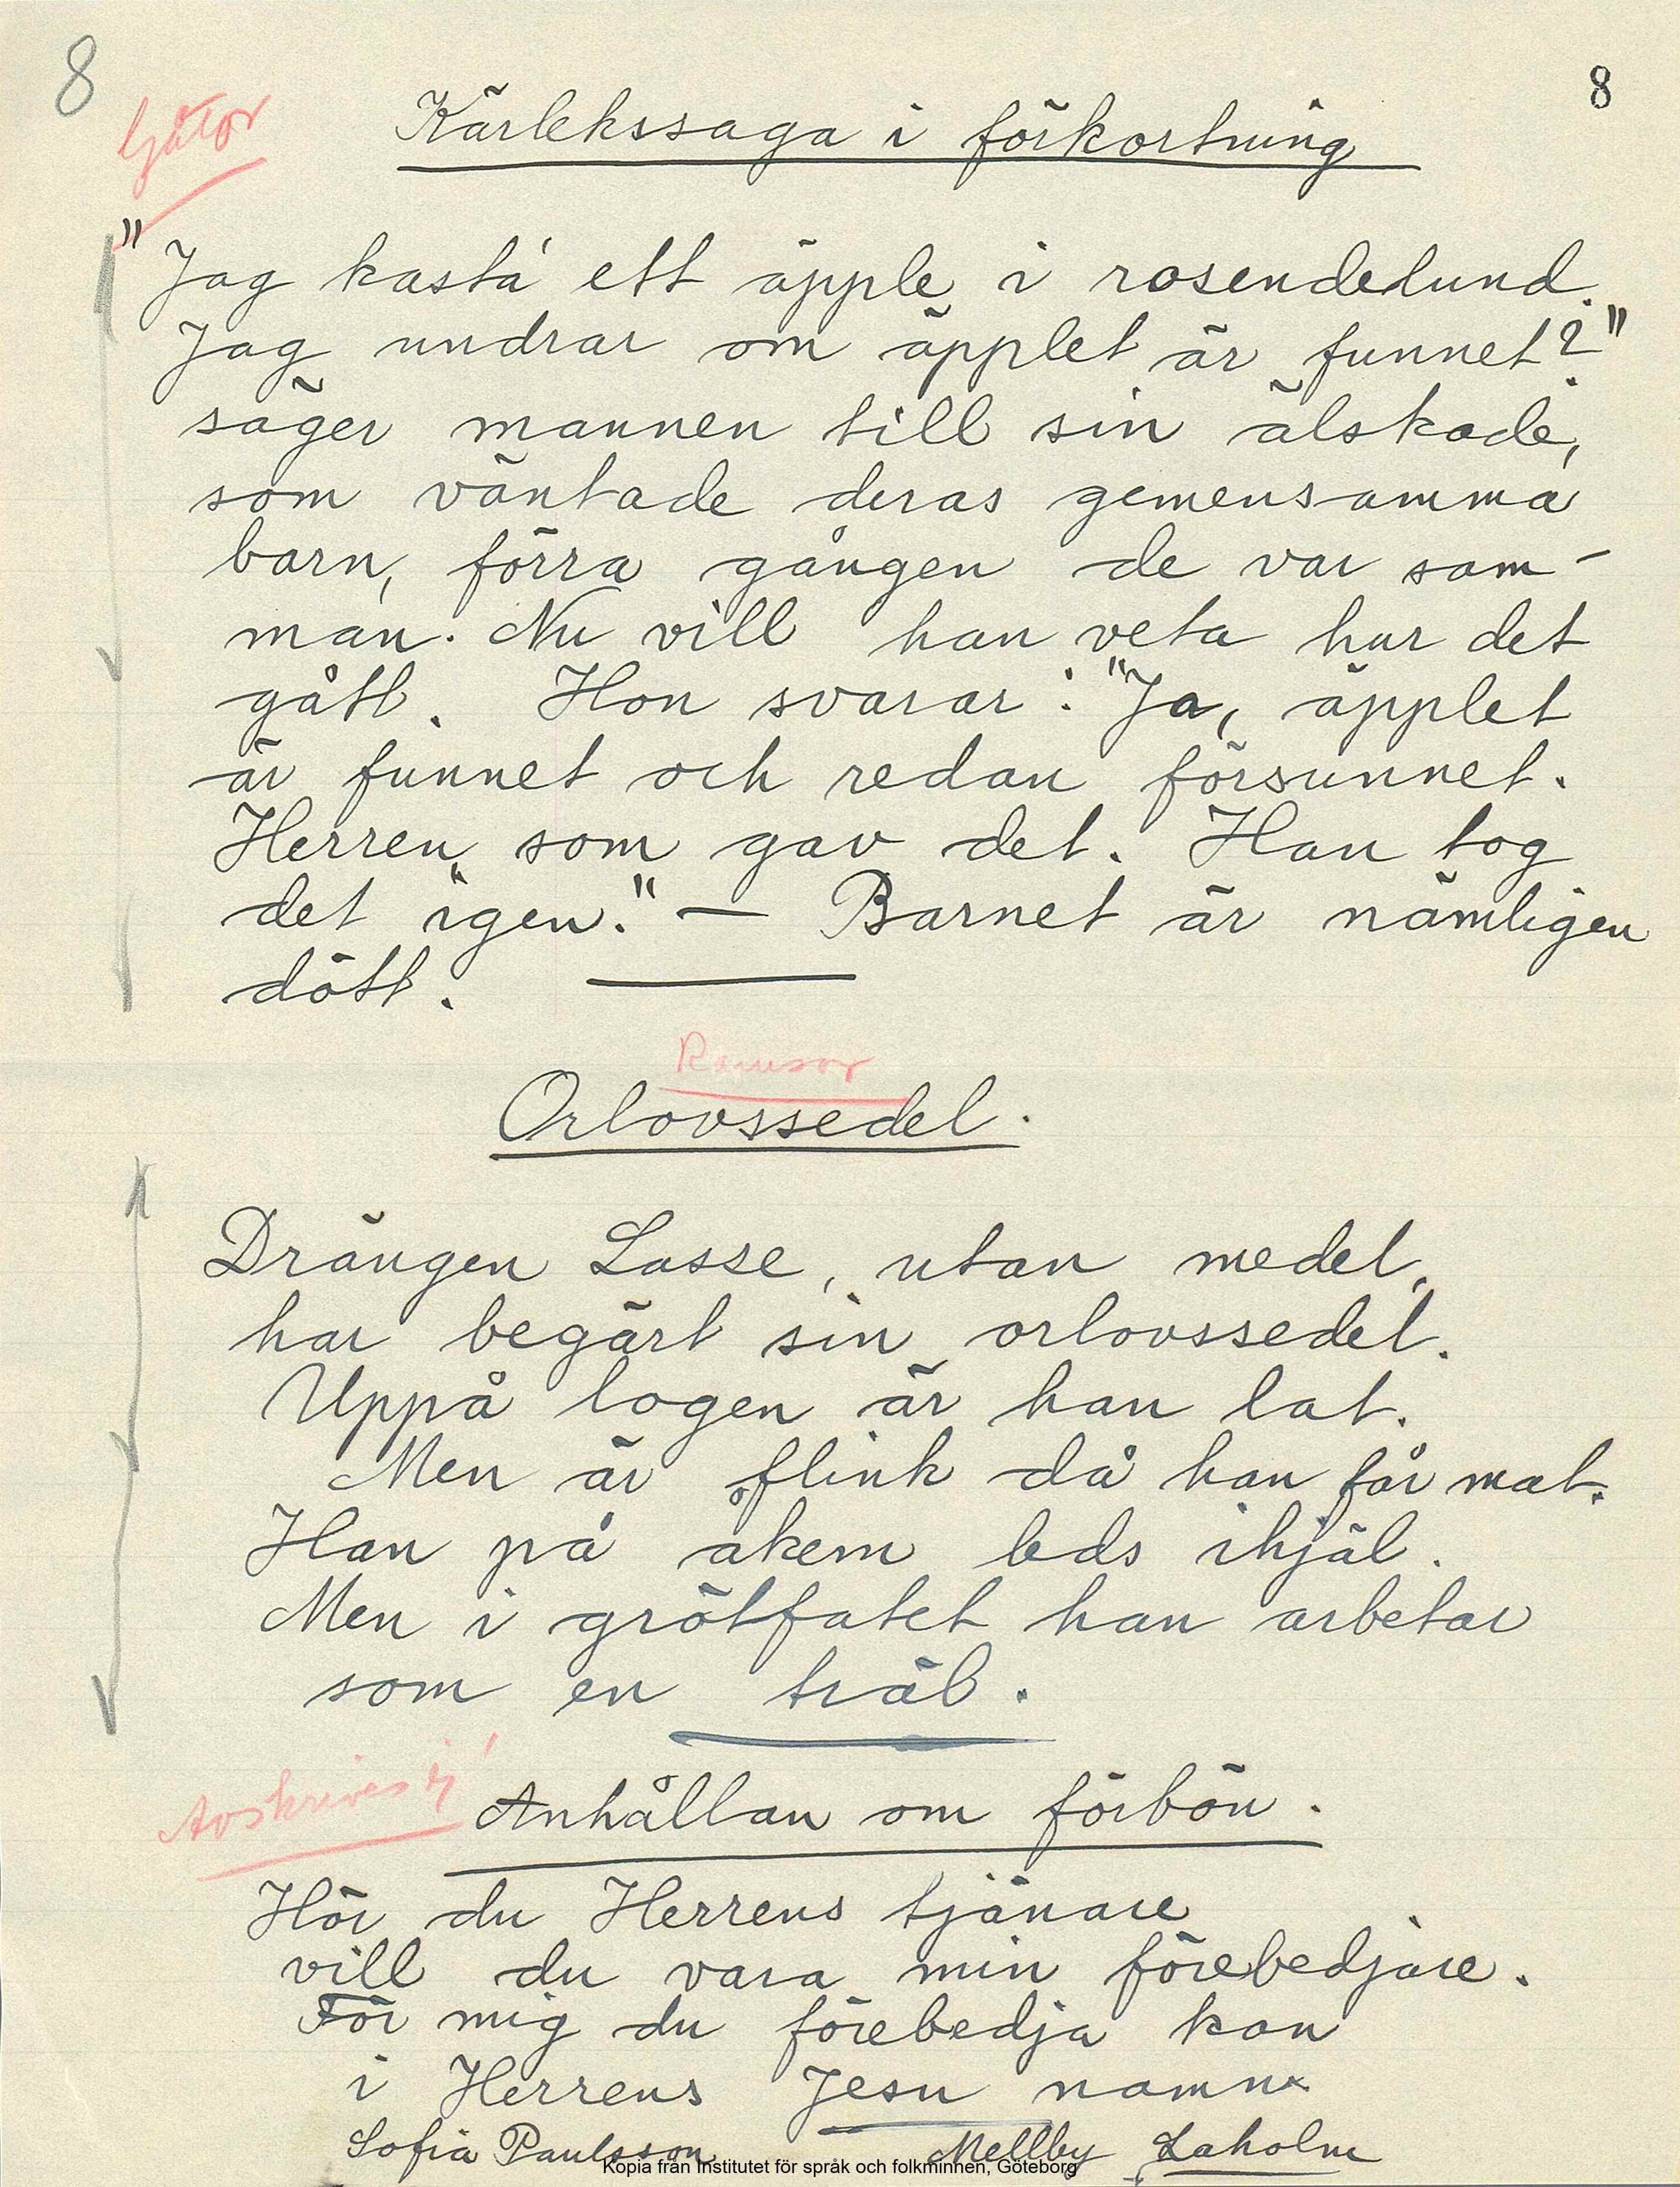 8
8
Gåtor
Kärlekssaga i förkortning
"Jag kasta' ett äpple i rosendelund.
Jag undrar om äpplet är funnet?"
säger mannen till sin älskade,
som väntade deras gemensamma
barn, förra gången de var sam-
man. Nu vill han veta hur det
gått. Hon svarar: "Ja, äpplet
är funnet och redan försunnet.
Herren som gav det. Han tog
det igen." — Barnet är nämligen
dött.
Ramsor
Orlovssedel.
Drängen Lasse, utan medel,
har begärt sin orlovssedel.
Uppå logen är han lat.
Men är flink då han får mat.
Han på åkern leds ihjäl.
Men i grötfatet han arbetar
som en träl.
Avskrives ej!
Anhållan om förbön.
Hör du Herrens tjänare
vill du vara min förebedjare.
För mig du förebedja kan
i Herrens Jesu namn
Sofia Paulsson Mellby Laholm
Kopia från Institutet för språk och folkminnen, Göteborg